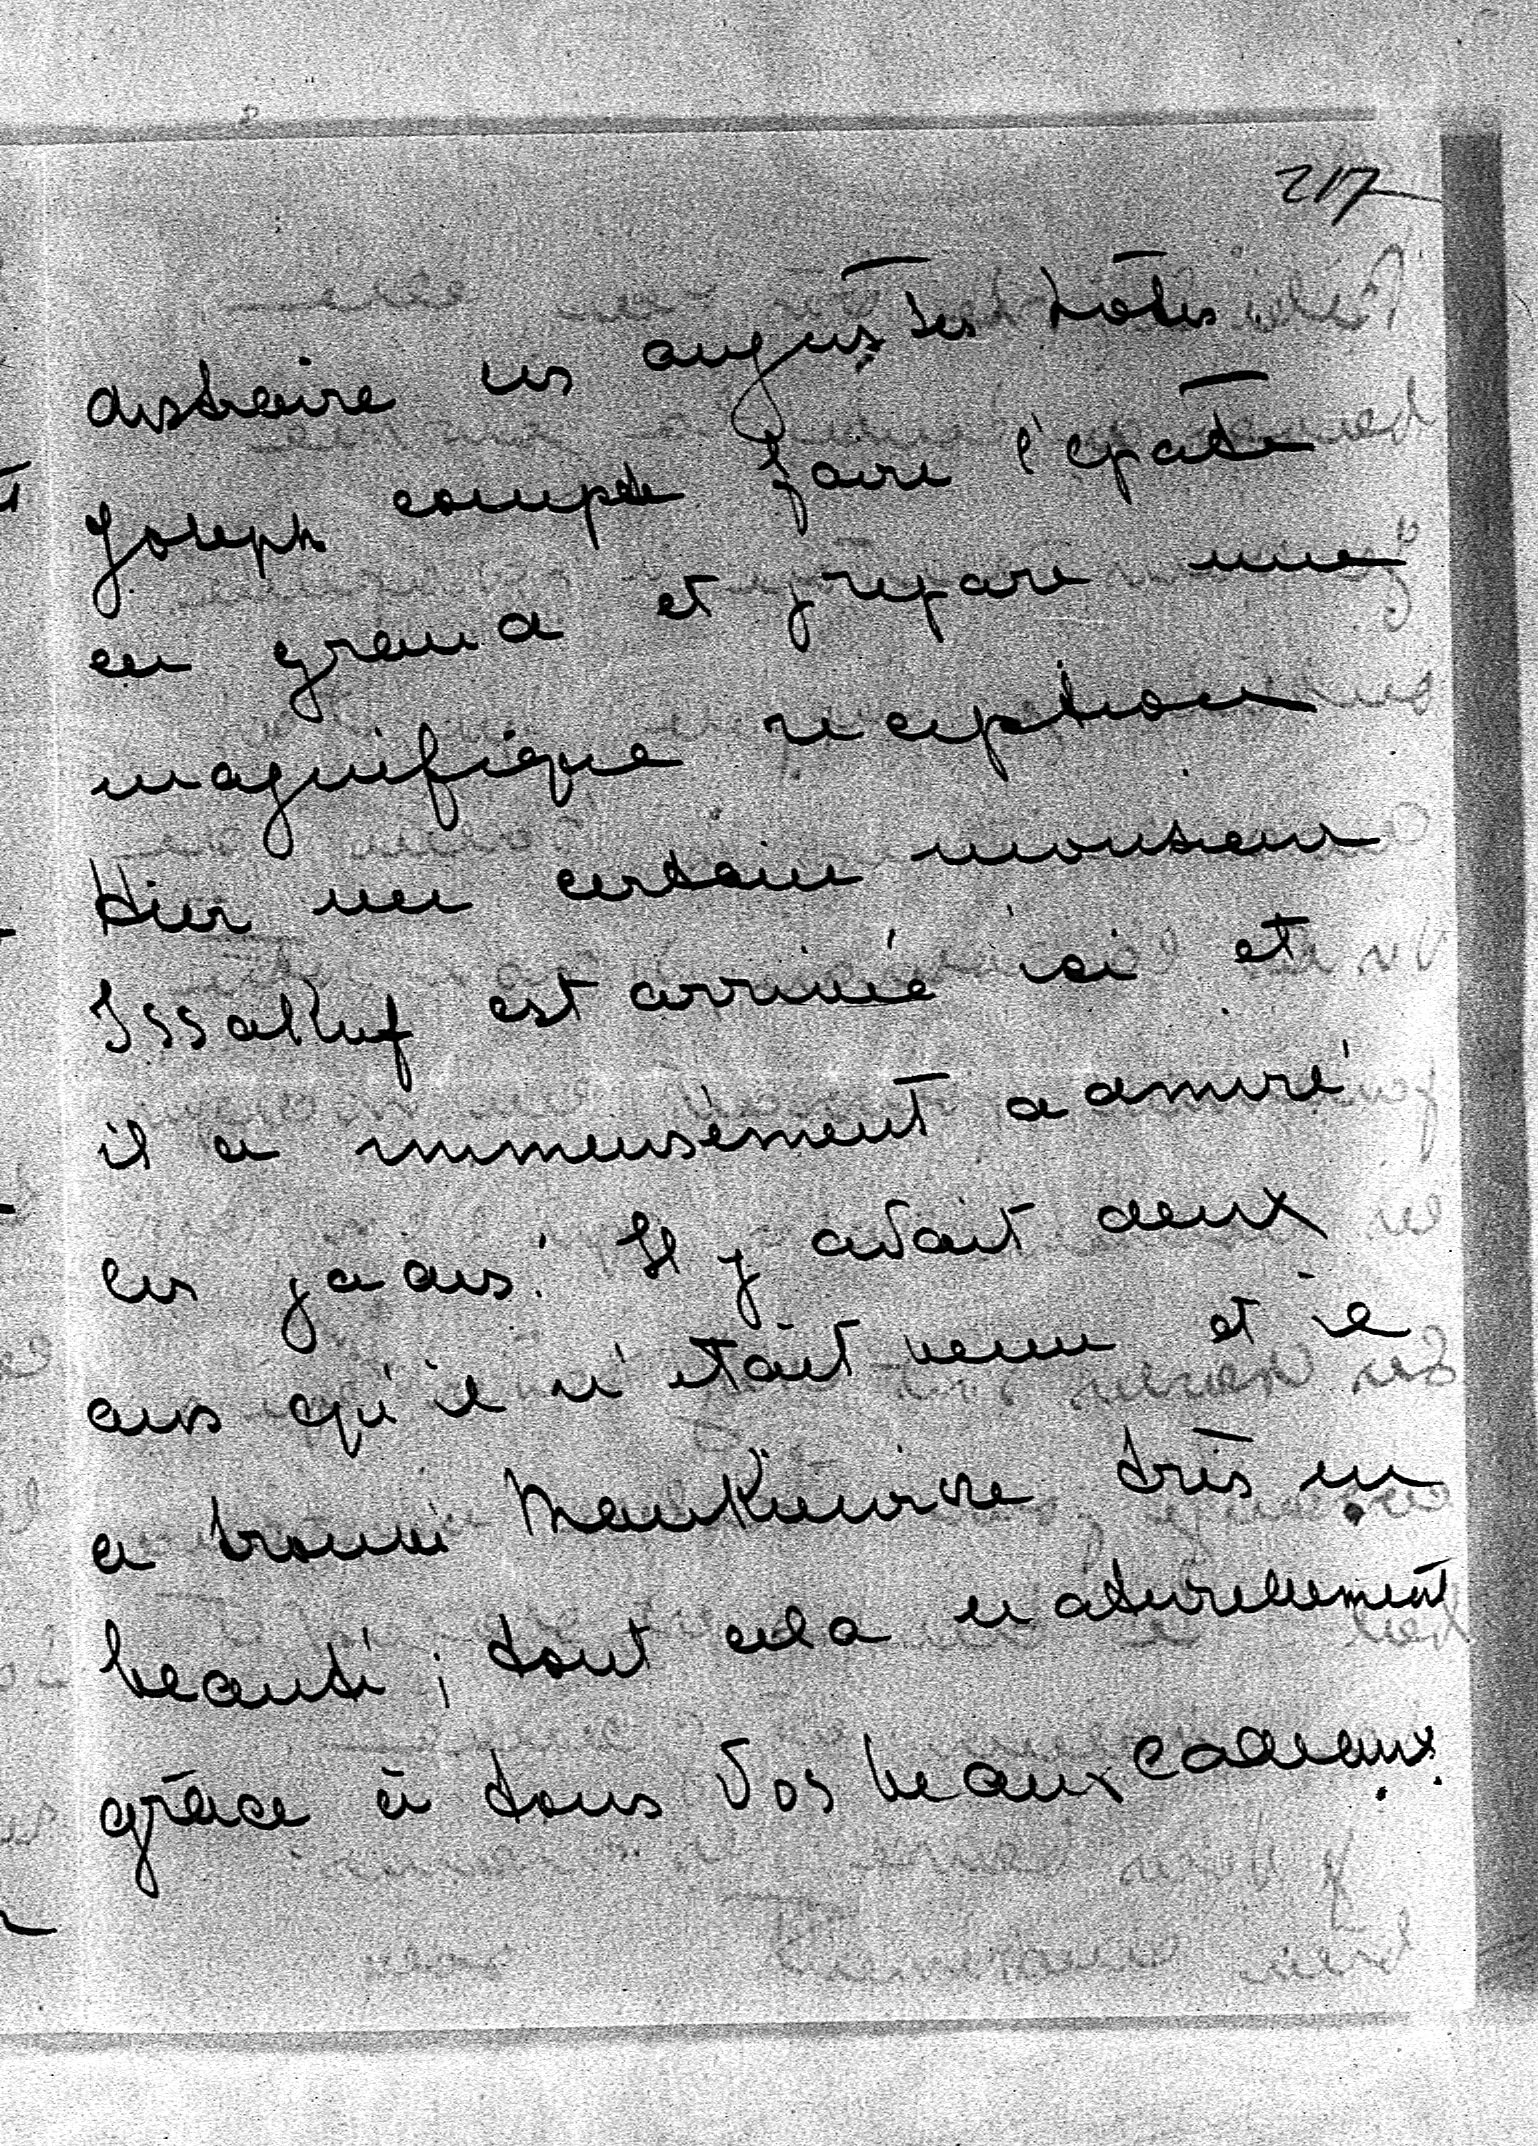 217
distraire ces augustes hôtes.
Joseph compte faire l'épate
en grand et prepare une
magnifique reception
Hier un certain monsieur
Issakuf est arrivée ici et
il a immensément admiré
les jadis! Il y avait deux
ans qu'il n'était venu et il
a trouvé Mankiewicze très en
beauté; tout cela naturellement
grâce à tous Vos beaux cadeaux.